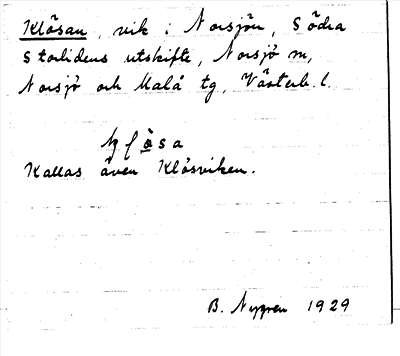 Klösan, vik i Norsjön, Södra
Storlidens utskifte, Norsjö sn,
Norsjö och Malå tg, Västerb. l.
Kallas även Klösviken.
B. Nygren 1929